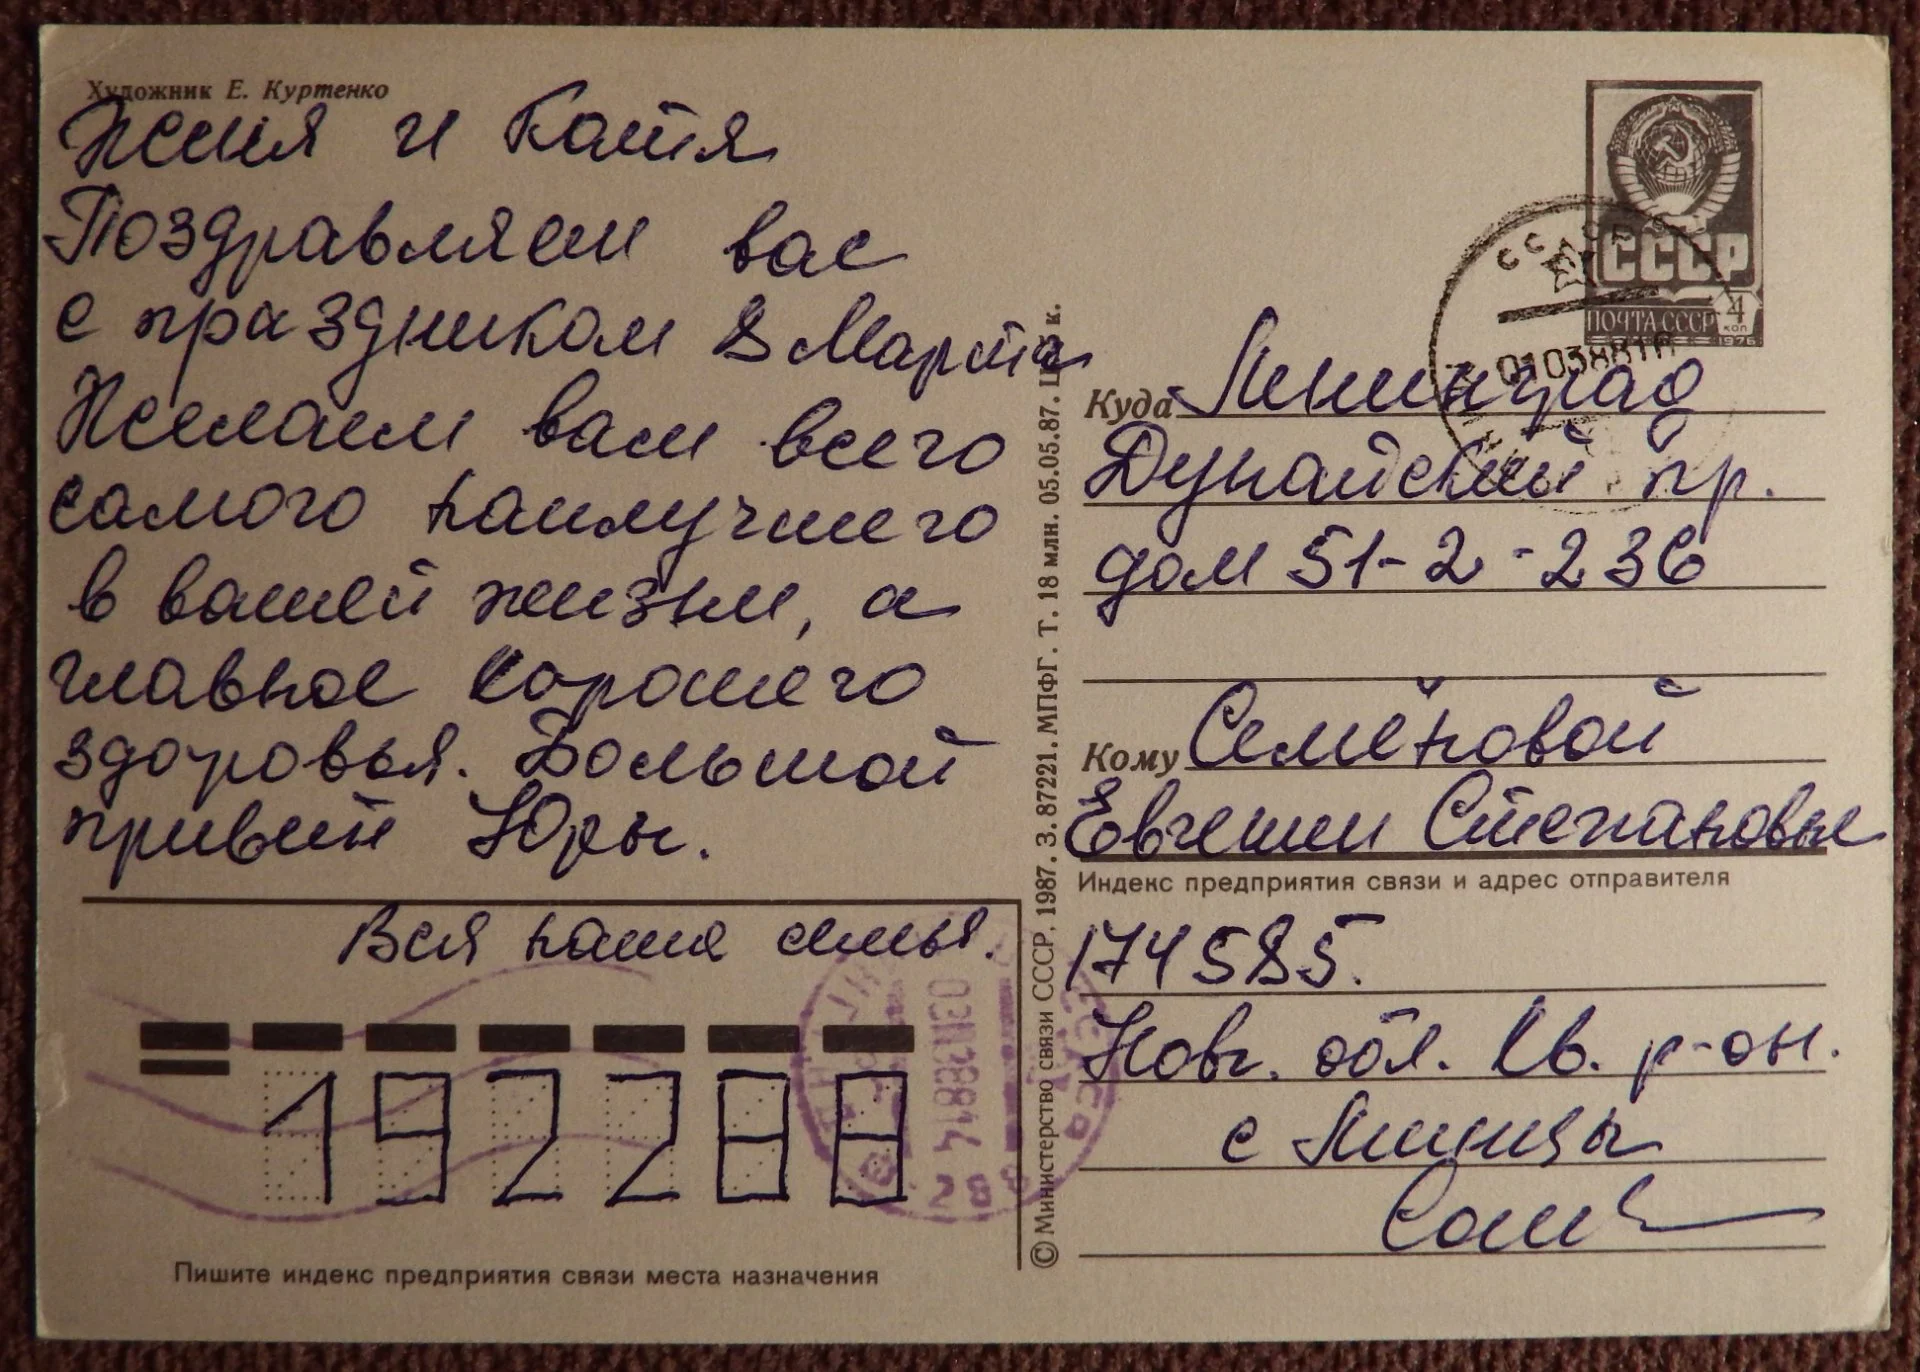 Художник Е. Куртенко
Женя и Катя
Поздравляем вас
с праздником 8 Марта
Желаем вам всего
самого наилучшего
в вашей жизни, а
главное хорошего
здоровья. Большой
привет Юры.
Вся наша семья.
192288
Пишите индекс предприятия связи места назначения
© Министерство связи СССР, 1987. З. 87221. МПФГ. Т. 18 млн. 05.05.87. Ц. к.
СССР
ПОЧТА СССР 4 коп
1976
Куда Ленинград
Дунайский пр.
дом 51-2-236
Кому Семёновой
Евгении Степановы
Индекс предприятия связи и адрес отправителя
174585.
Новг. обл. Хв. р-он.
с Миницы